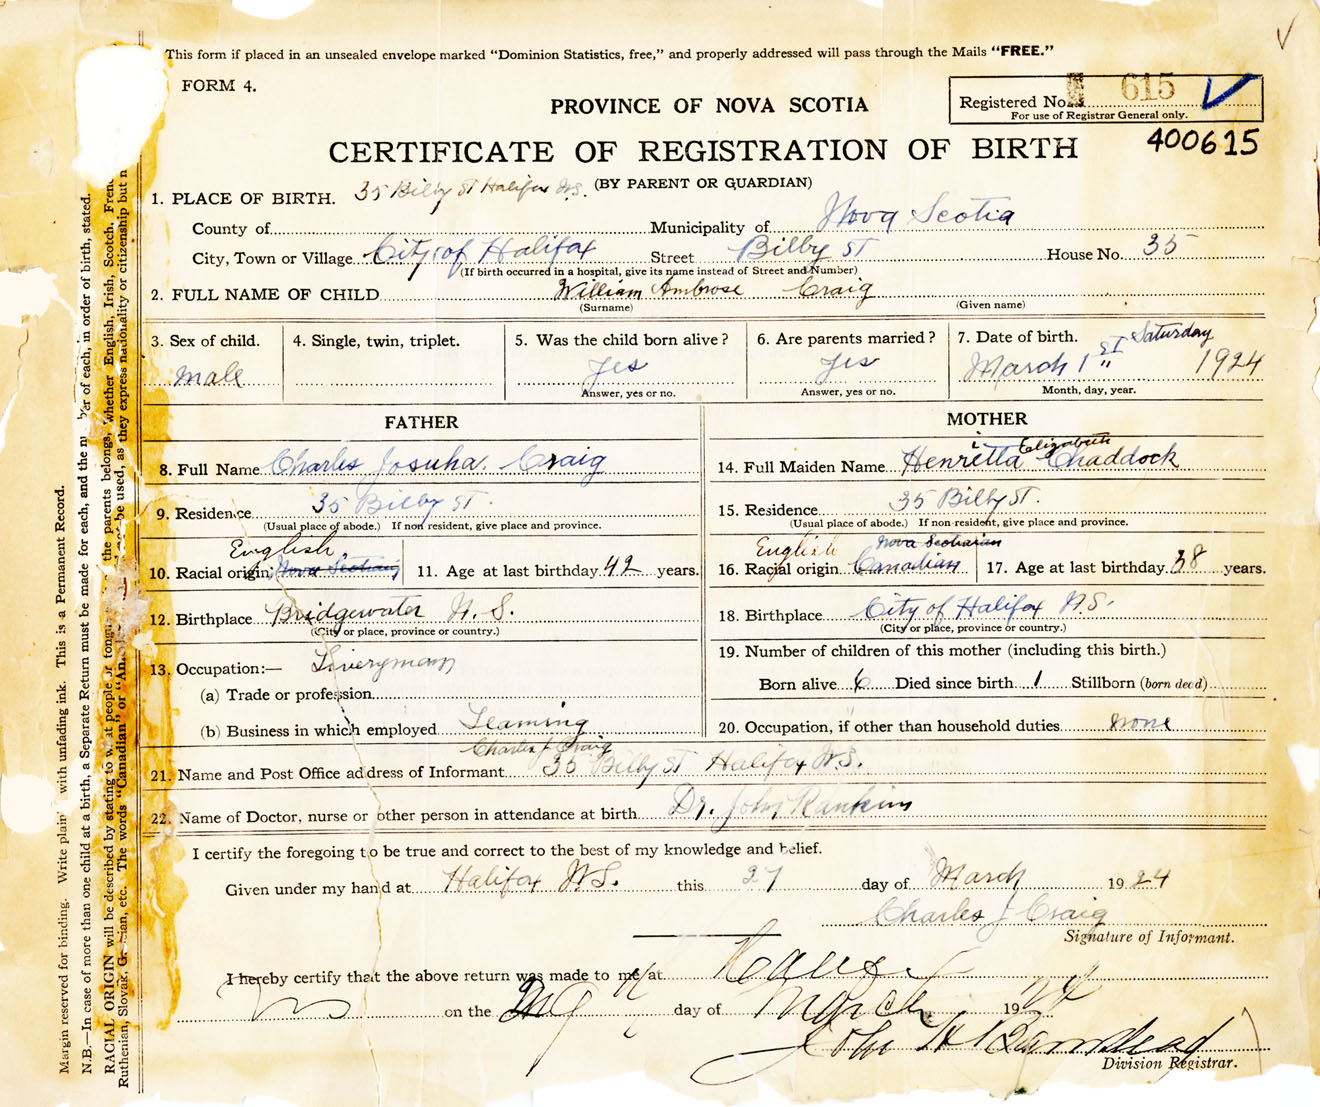 This form if placed in an unsealed envelope marked "Dominion Statistics, free," and properly addressed will pass through the Mails "FREE."
FORM 4.
Registered No. 615
For use of Registrar General only.
400615
PROVINCE OF NOVA SCOTIA
CERTIFICATE OF REGISTRATION OF BIRTH
(BY PARENT OR GUARDIAN)
1. PLACE OF BIRTH. 35 Bilby St Halifax N.S.
County of Municipality of Nova Scotia
City, Town or Village City of Halifax Street Bilby ST House No. 35
(If birth occurred in a hospital, give its name instead of Street and Number)
2. FULL NAME OF CHILD William Ambrose Craig
(Surname) (Given name)
3. Sex of child. 4. Single, twin, triplet. 5. Was the child born alive? 6. Are parents married? 7. Date of birth. Saturday
Male Yes Yes March 1 ST 1924
Answer, yes or no. Answer, yes or no. Month, day, year.
FATHER
8. Full Name Charles Josuha Craig
9. Residence 35 Bilby ST.
(Usual place of abode.) If non resident, give place and province.
English
10. Racial origin; Nova Scotian 11. Age at last birthday 42 years.
12. Birthplace Bridgewater N.S.
(City or place, province or country.)
13. Occupation:— Liveryman
(a) Trade or profession
(b) Business in which employed Teaming
MOTHER
i Elizabeth
14. Full Maiden Name Henretta Chaddock
15. Residence 35 Bilby ST.
(Usual place of abode.) If non-resident, give place and province.
English Nova Scotian
16. Racial origin Canadian 17. Age at last birthday 38 years.
18. Birthplace City of Halifax N.S.
(City or place, province or country.)
19. Number of children of this mother (including this birth.)
Born alive 6 Died since birth 1 Stillborn (born dead)
20. Occupation, if other than household duties none
Charles J Craig
21. Name and Post Office address of Informant 35 Bilby ST Halifax N.S.
22. Name of Doctor, nurse or other person in attendance at birth Dr. John Rankin
I certify the foregoing to be true and correct to the best of my knowledge and belief.
Given under my hand at Halifax N.S. this 27 day of March 1924
Charles J Craig
Signature of Informant.
I hereby certify that the above return was made to me at
on the day of March 1924
John
Division Registrar.
Margin reserved for binding. Write plain with unfading ink. This is a Permanent Record.
N.B.—In case of more than one child at a birth, a Separate Return must be made for each, and the of each, in order of birth, stated.
RACIAL ORIGIN will be described by stating to what people or the parents belongs, whether English, Irish, Scotch,
Ruthenian, Slovak, etc. The words "Canadian" or be used, as they express nationality or citizenship but